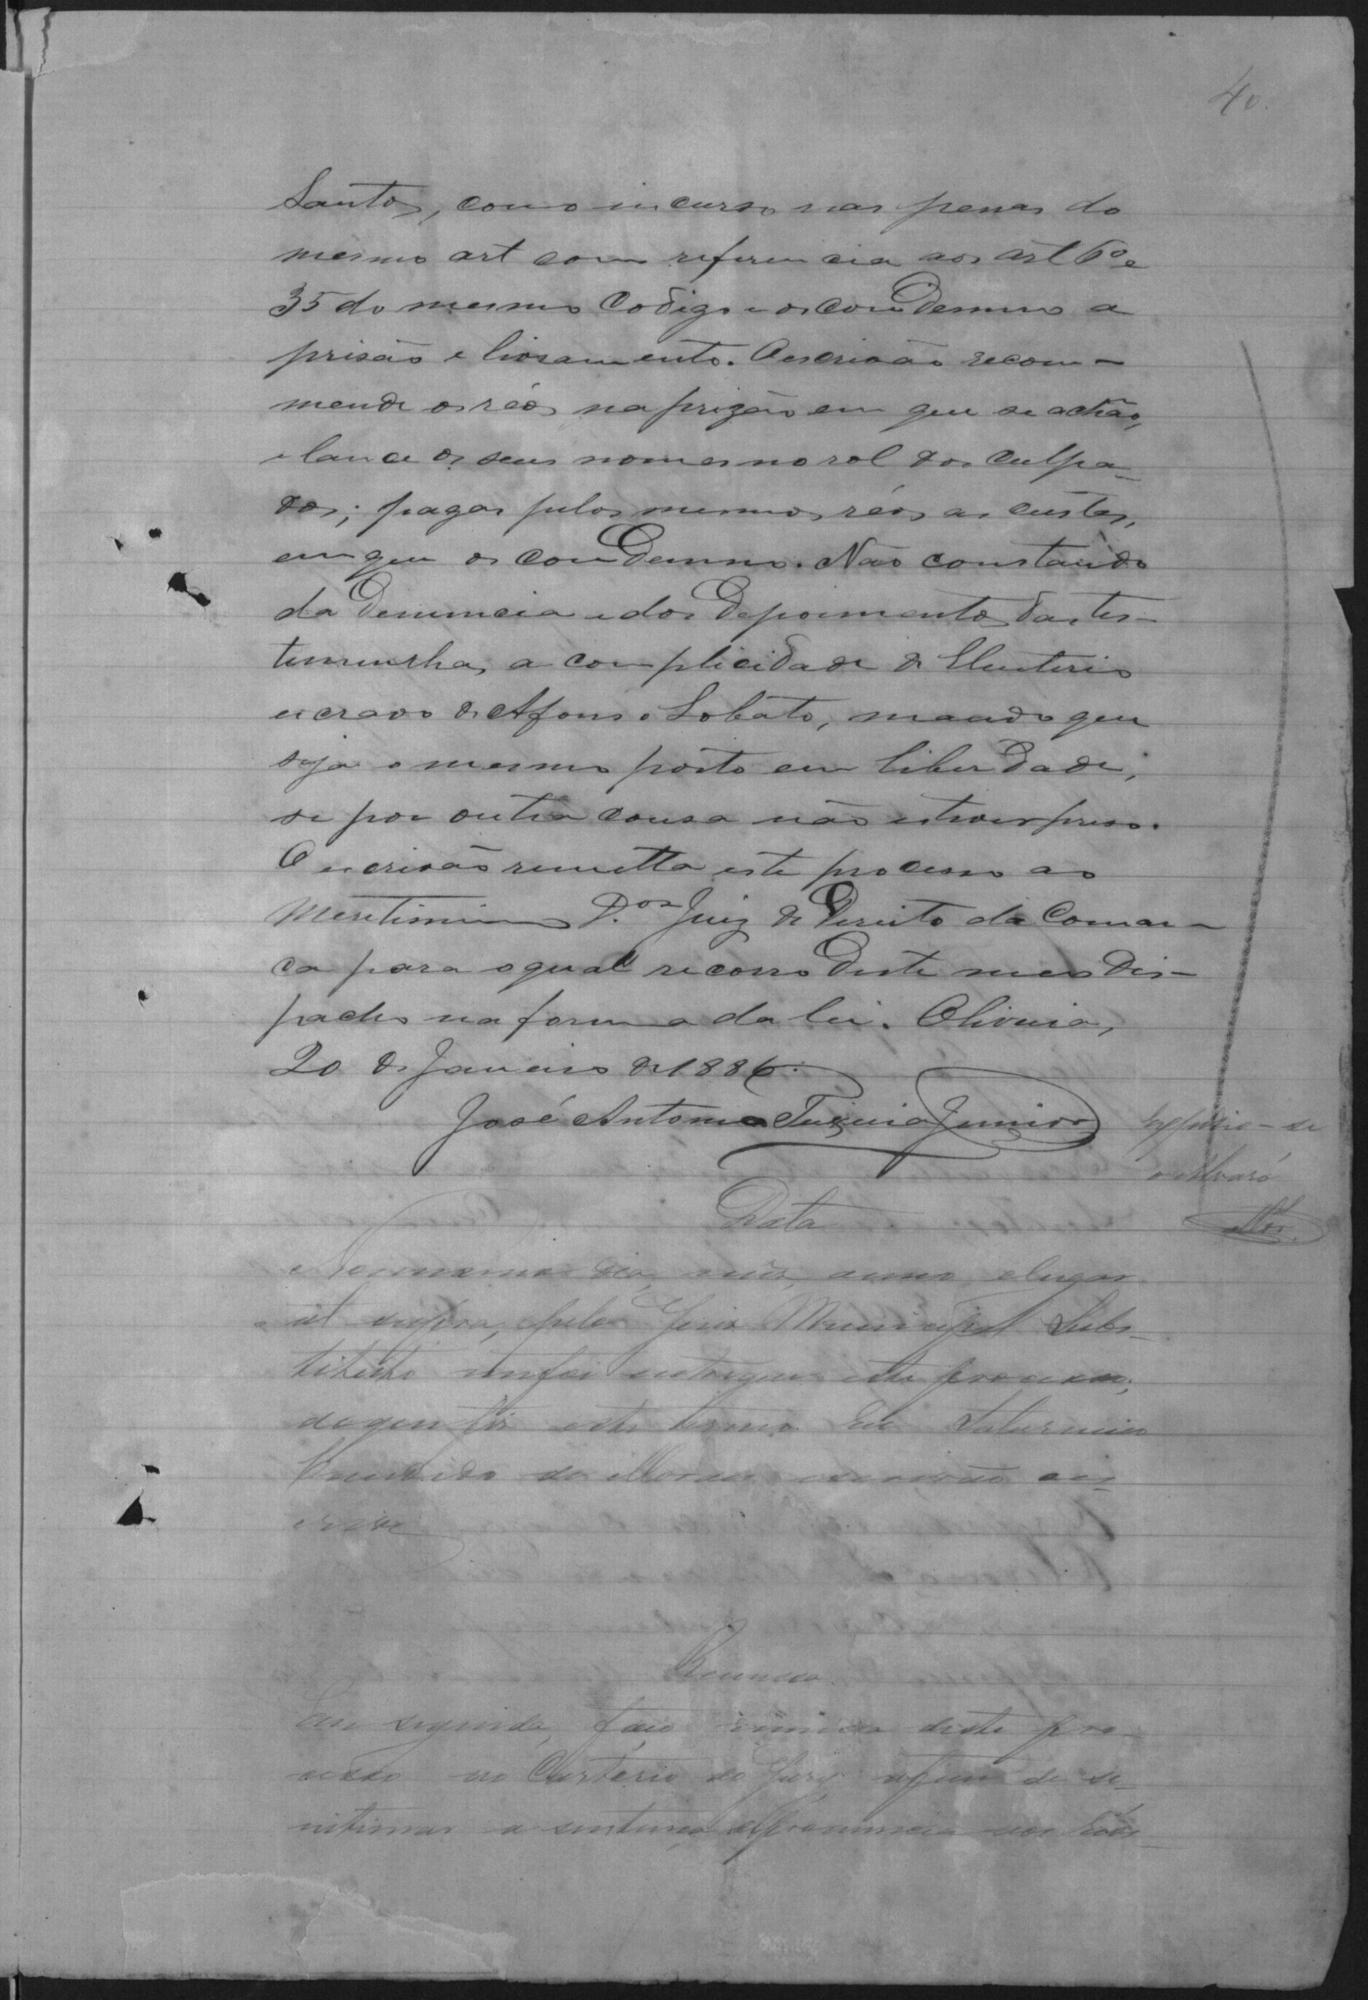 40.
Santos, como incurso nas penas do
mesmo art com referencia aos art 6º e
35 do mesmo Codigo e os condemno a
prisão e livramento. O escrivão recom-
mende os réos na prizão em que se achão,
e lance os seus nomes no rol dos culpa-
dos; pagas pelos mesmos réos as custas,
em que os condemno. Não constando
da denuncia e dos depoimentos das tes-
temunhas a complicidade de Eleuterio
escravo de Afonso Lobato, mando que
seja o mesmo posto em liberdade,
se por outra cousa não estiver preso.
O escrivão remetta este processo ao
Meretissimo D.or Juiz de Direito da Comar-
ca para o qual recorro deste meu des-
pacho na forma da lei. Oliveira,
20 de Janeiro de 1886.
José Antonio Teixeira Junior
Expessa-se
o Alvará
Data
No mesmo dia, mês, anno e lugar
et supra, pelo Juiz Municipal Subs-
tituto me foi entregue este processo;
do que fiz este termo. Eu Saturnino
Candido de Moraes escrivão es-
crevi
Remessa
Em seguida, faço remessa deste pro-
cesso ao Cartorio do Jury afim de se
intimar a sentença de pronuncia aos Réos